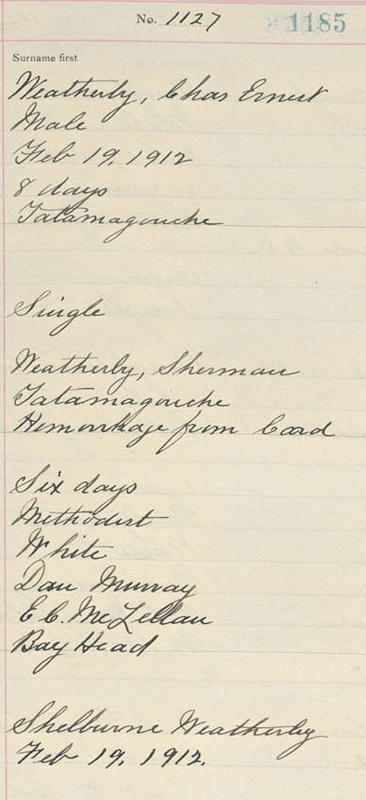 No. 1127
1185
Surname first
Weatherby, Chas Ernest
Male
Feb 19, 1912
8 days
Tatamagouche
Single
Weatherby, Sherman
Tatamagouche
Hemorrhage from Cord
Six days
Methodist
White
Dan Murray
E C. McLellan
Bay Head
Shelburne Weatherby
Feb 19, 1912.